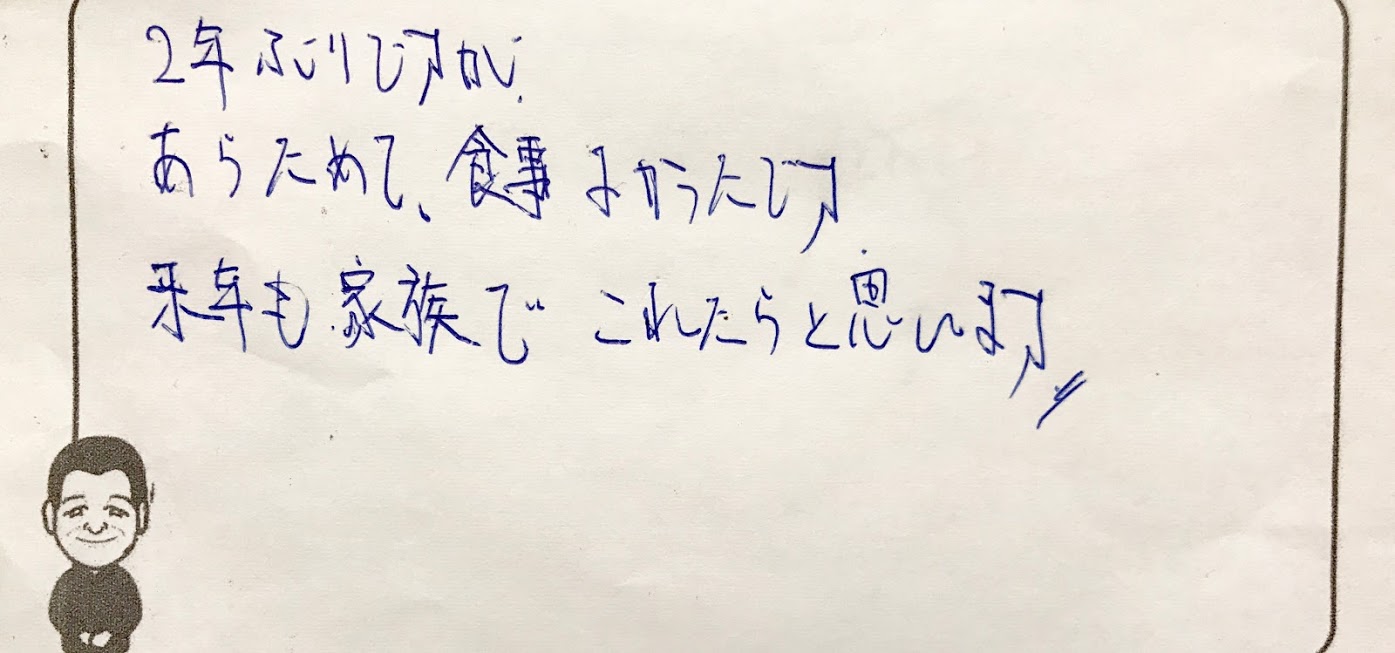 2年ぶりですが、
あらためて、食事よかったです
来年も家族で これたらと思います